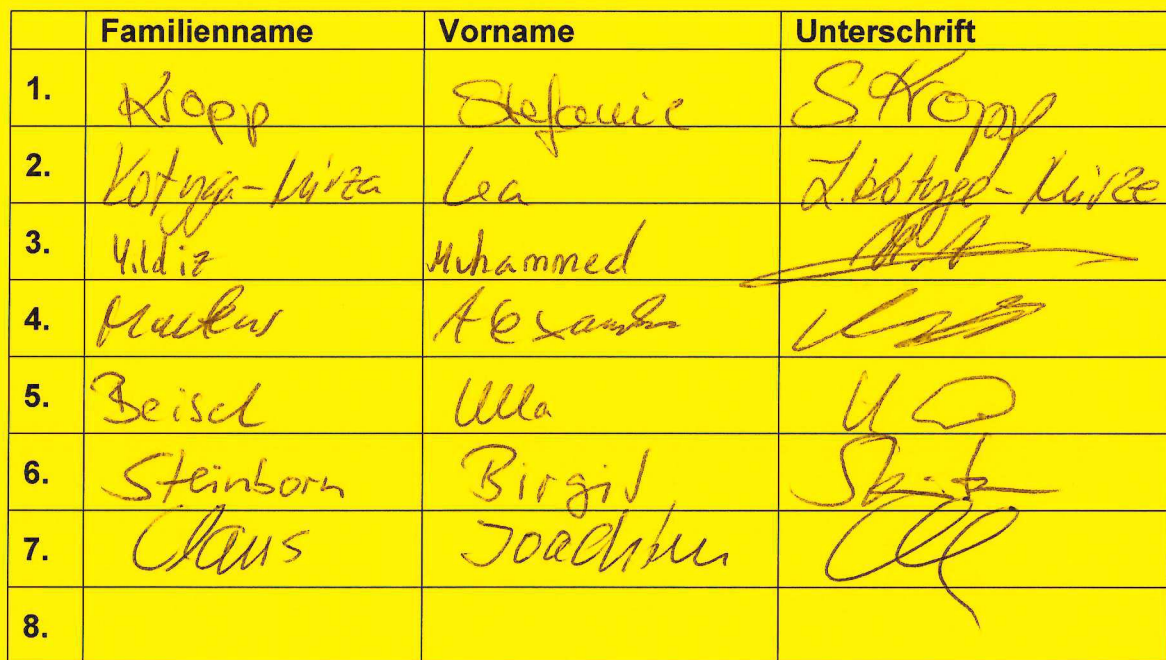 Familienname Vorname Unterschrift
1. Kropp Stefanie S. Kropp
2. Kotyga-Mirza Lea L. Kotyga-Mirza
3. Yildiz Muhammed
4. Markus Alexander
5. Beisel Ulla U
6. Steinborn Birgit
7. Claus Joachim
8.